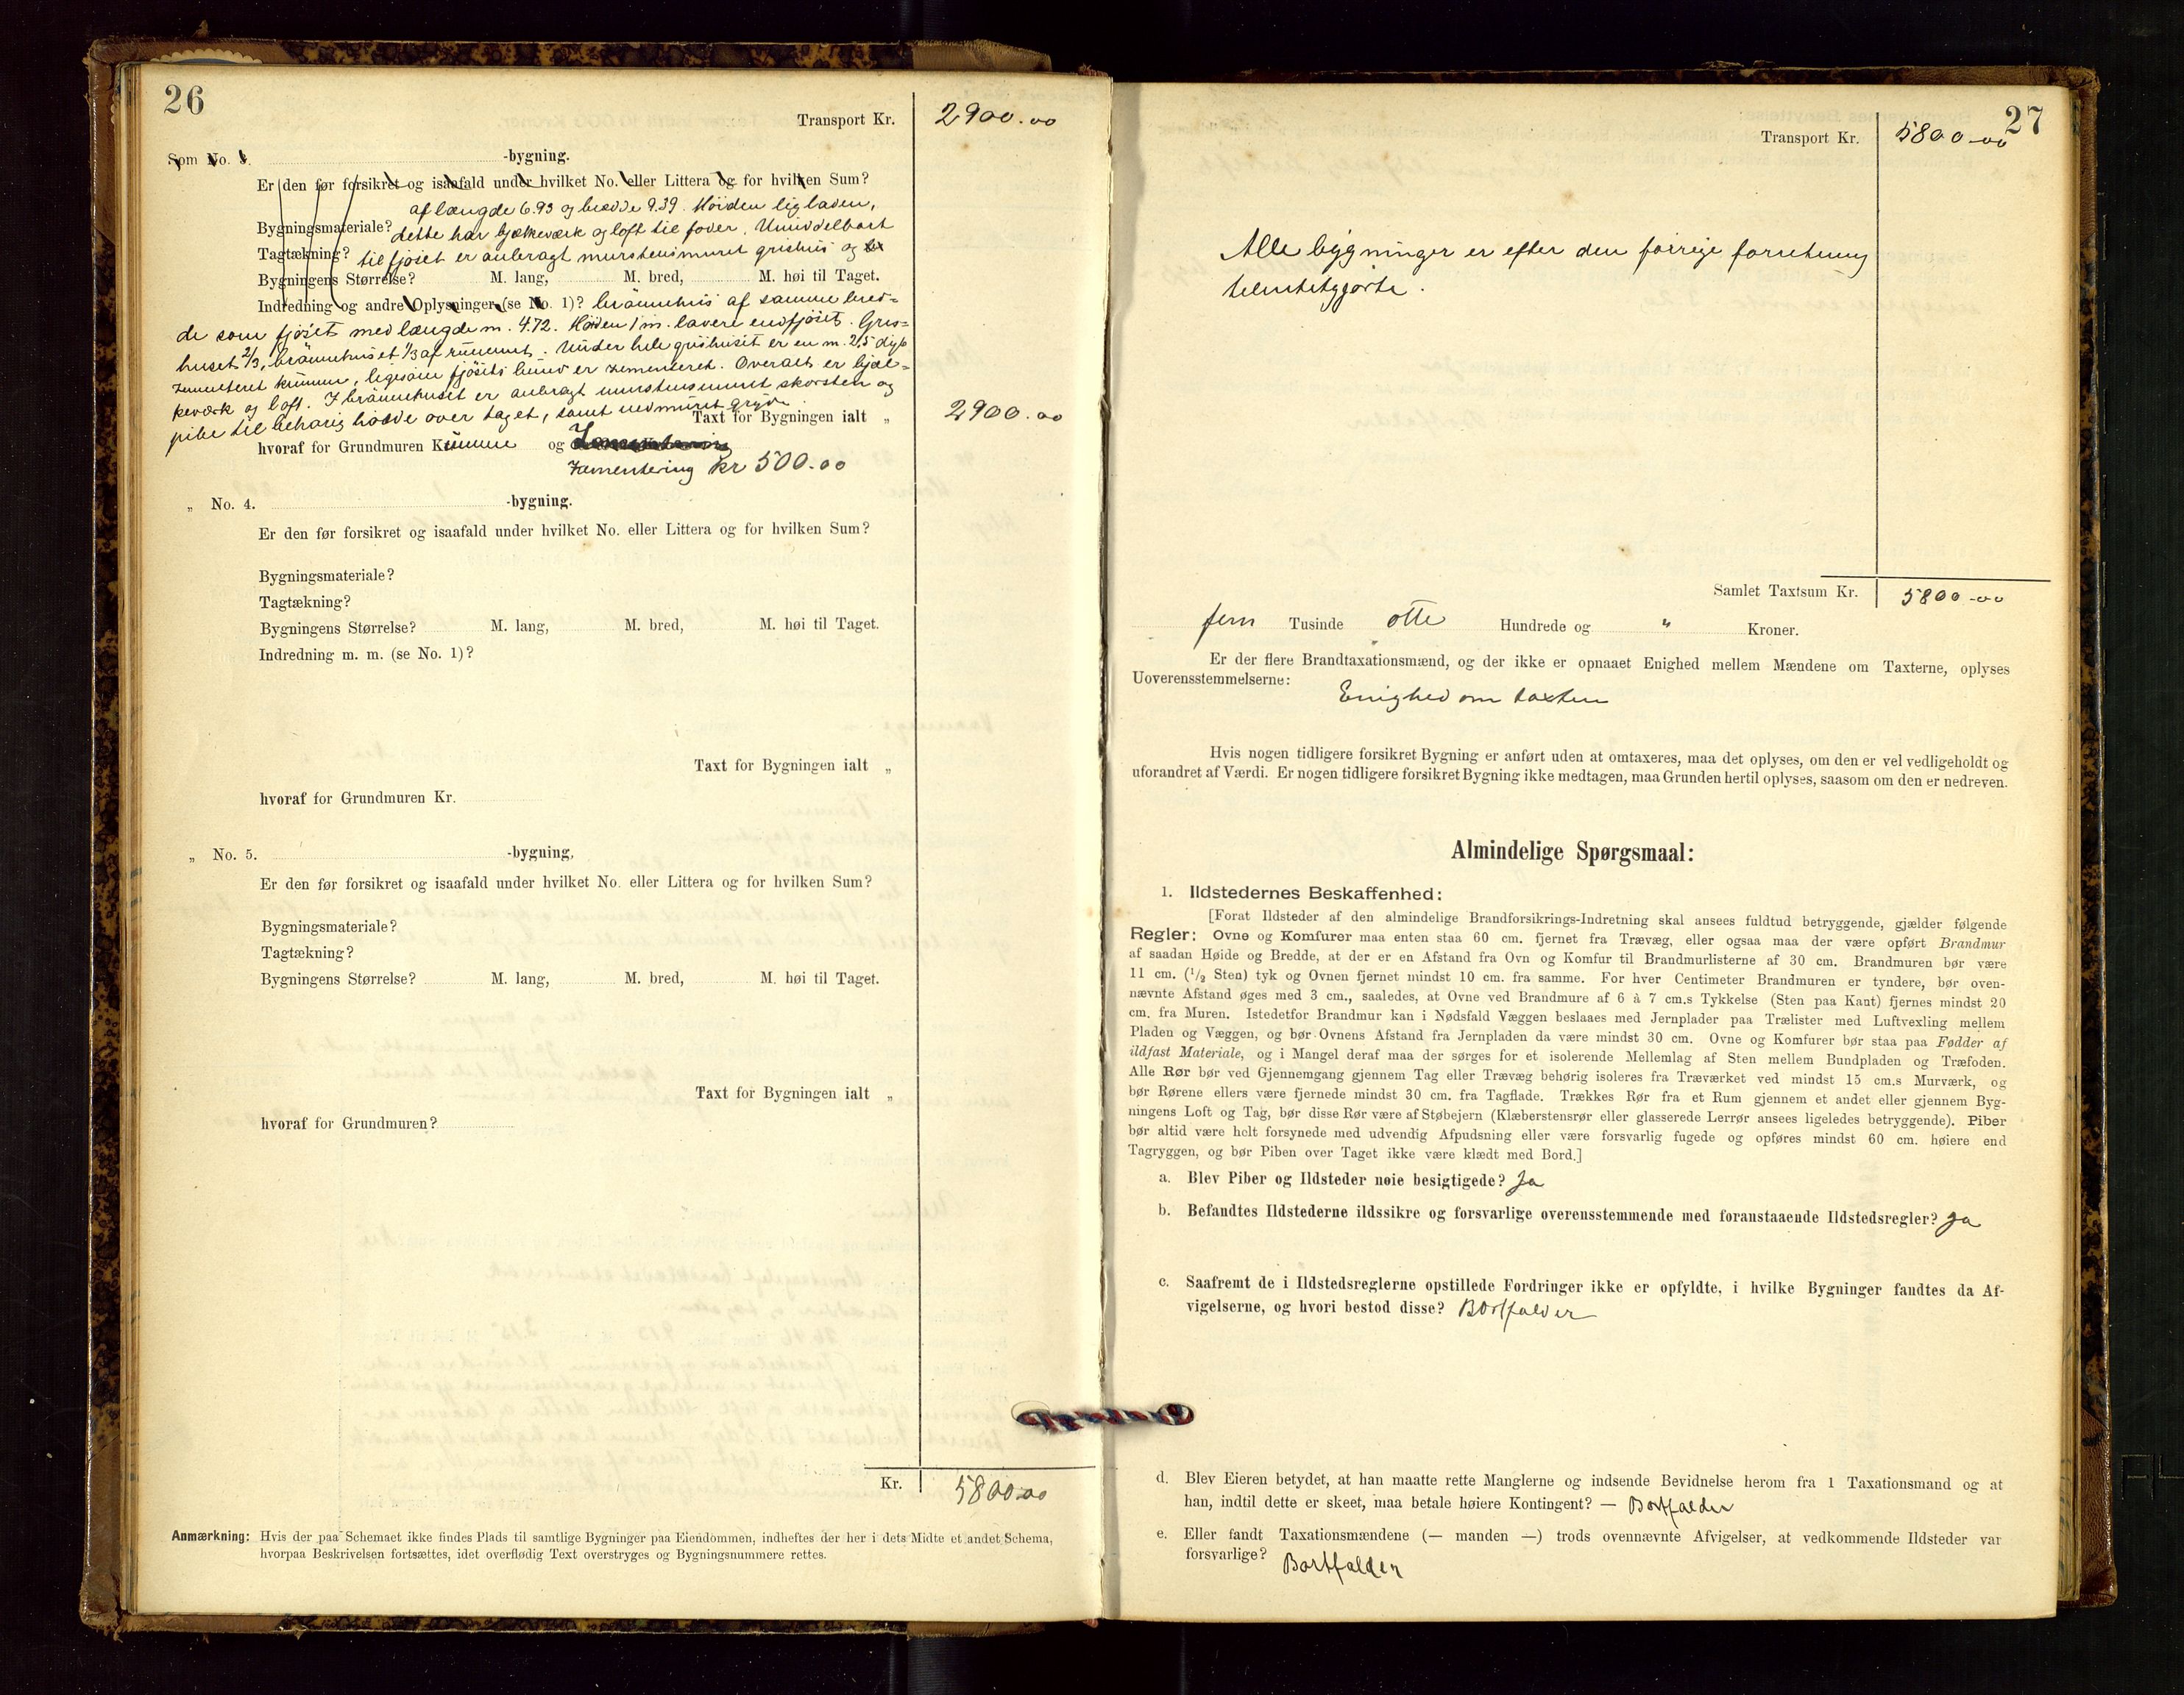 26
Transport Kr. 2900.00
Som No. 3. -bygning.
Er den før forsikret og isaafald under hvilket No. eller Littera og for hvilken Sum?
af længde 6.93 og bredde 9.39. Höiden lig laden,
Bygningsmateriale? dette har bjelkeværk og loft til foder. Umiddelbart
Tagtækning? til fjöset er anbragt murstensmuret grishus og
Bygningens Størrelse? M. lang, M. bred, M. høi til Taget.
Indredning og andre Oplysninger (se No. 1)? brännehus af samme bred-
de som fjöset med længde m. 4.72. Höiden 1 m. lavere end fjöset. Gris-
huset 2/3, brännehuset 1/3 af rummet. Under hele grishuset er en m. 2,5 dyb
zementeret kumme, ligesom fjösets bund er zementeret. Overalt er bjæl-
keværk og loft. I brännehuset er anbragt murstensmuret skorsten og
pibe til behörig höide over taget, samt nedmuret gryde.
Taxt for Bygningen ialt „ 2900.00
hvoraf for Grundmuren Kumme og
Zementering kr 500.00
„ No. 4. -bygning.
Er den før forsikret og isaafald under hvilket No. eller Littera og for hvilken Sum?
Bygningsmateriale?
Tagtækning?
Bygningens Størrelse? M. lang, M. bred, M. høi til Taget.
Indredning m. m. (se No. 1)?
Taxt for Bygningen ialt „
hvoraf for Grundmuren Kr.
„ No. 5. -bygning.
Er den før forsikret og isaafald under hvilket No. eller Littera og for hvilken Sum?
Bygningsmateriale?
Tagtækning?
Bygningens Størrelse? M. lang, M. bred, M. høi til Taget.
Taxt for Bygningen ialt „
hvoraf for Grundmuren?
Kr. 5800.00
Anmærkning: Hvis der paa Schemaet ikke findes Plads til samtlige Bygninger paa Eiendommen, indheftes der her i dets Midte et andet Schema,
hvorpaa Beskrivelsen fortsættes, idet overflødig Text overstryges og Bygningsnummere rettes.
27
Transport Kr. 5800-00
Alle bygninger er efter den forrige forretning
Samlet Taxtsum Kr. 5800-00
fem Tusinde otte Hundrede og " Kroner.
Er der flere Brandtaxationsmænd, og der ikke er opnaaet Enighed mellem Mændene om Taxterne, oplyses
Uoverensstemmelserne:
Enighed om taxten
Hvis nogen tidligere forsikret Bygning er anført uden at omtaxeres, maa det oplyses, om den er vel vedligeholdt og
uforandret af Værdi. Er nogen tidligere forsikret Bygning ikke medtagen, maa Grunden hertil oplyses, saasom om den er nedreven.
Almindelige Spørgsmaal:
1. Ildstedernes Beskaffenhed:
[Forat Ildsteder af den almindelige Brandforsikrings-Indretning skal ansees fuldtud betryggende, gjælder følgende
Regler: Ovne og Komfurer maa enten staa 60 cm. fjernet fra Trævæg, eller ogsaa maa der være opført Brandmur
af saadan Høide og Bredde, at der er en Afstand fra Ovn og Komfur til Brandmurlisterne af 30 cm. Brandmuren bør være
11 cm. (1/2 Sten) tyk og Ovnen fjernet mindst 10 cm. fra samme. For hver Centimeter Brandmuren er tyndere, bør oven-
nævnte Afstand øges med 3 cm., saaledes, at Ovne ved Brandmure af 6 à 7 cm.s Tykkelse (Sten paa Kant) fjernes mindst 20
cm. fra Muren. Istedetfor Brandmur kan i Nødsfald Væggen beslaaes med Jernplader paa Trælister med Luftvexling mellem
Pladen og Væggen, og bør Ovnens Afstand fra Jernpladen da være mindst 30 cm. Ovne og Komfurer bør staa paa Fødder af
ildfast Materiale, og i Mangel deraf maa der sørges for et isolerende Mellemlag af Sten mellem Bundpladen og Træfoden.
Alle Rør bør ved Gjennemgang gjennem Tag eller Trævæg behørig isoleres fra Træværket ved mindst 15 cm.s Murværk, og
bør Rørene ellers være fjernede mindst 30 cm. fra Tagflade. Trækkes Rør fra et Rum gjennem et andet eller gjennem Byg-
ningens Loft og Tag, bør disse Rør være af Støbejern (Klæberstensrør eller glasserede Lerrør ansees ligeledes betryggende). Piber
bør altid være helt forsynede med udvendig Afpudsning eller være forsvarlig fugede og opføres mindst 60 cm. høiere end
Tagryggen, og bør Piben over Taget ikke være klædt med Bord.]
a. Blev Piber og Ildsteder nøie besigtigede? Ja
b. Befandtes Ildstederne ildssikre og forsvarlige overensstemmende med foranstaaende Ildstedsregler? Ja
c. Saafremt de i Ildstedsreglerne opstillede Fordringer ikke er opfyldte, i hvilke Bygninger fandtes da Af-
vigelserne, og hvori bestod disse? Bortfalder
d. Blev Eieren betydet, at han maatte rette Manglerne og indsende Bevidnelse herom fra 1 Taxationsmand og at
han, indtil dette er skeet, maa betale høiere Kontingent? — Bortfalder
e. Eller fandt Taxationsmændene (— manden —) trods ovennævnte Afvigelser, at vedkommende Ildsteder var
forsvarlige? Bortfalder